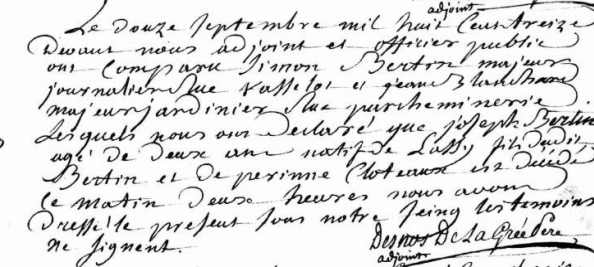 adjoint
Le douze septembre mil huit cent treize
Devant nous adjoint et officier public
ont comparu Simon Bertin majeur
journalier Rue Vasselot et jean Blanchard
majeur jardinier Rue parcheminerie
Lesquels nous ont declaré que joseph Bertin
agé de deux ans natif de Lassy fils dudit
Bertin et de perinne Cloteaux est décédé
ce matin deux heures nous avons
Dressé le present sous notre seing les temoins
ne signent.
Desnos De La Grée Pere
adjoint